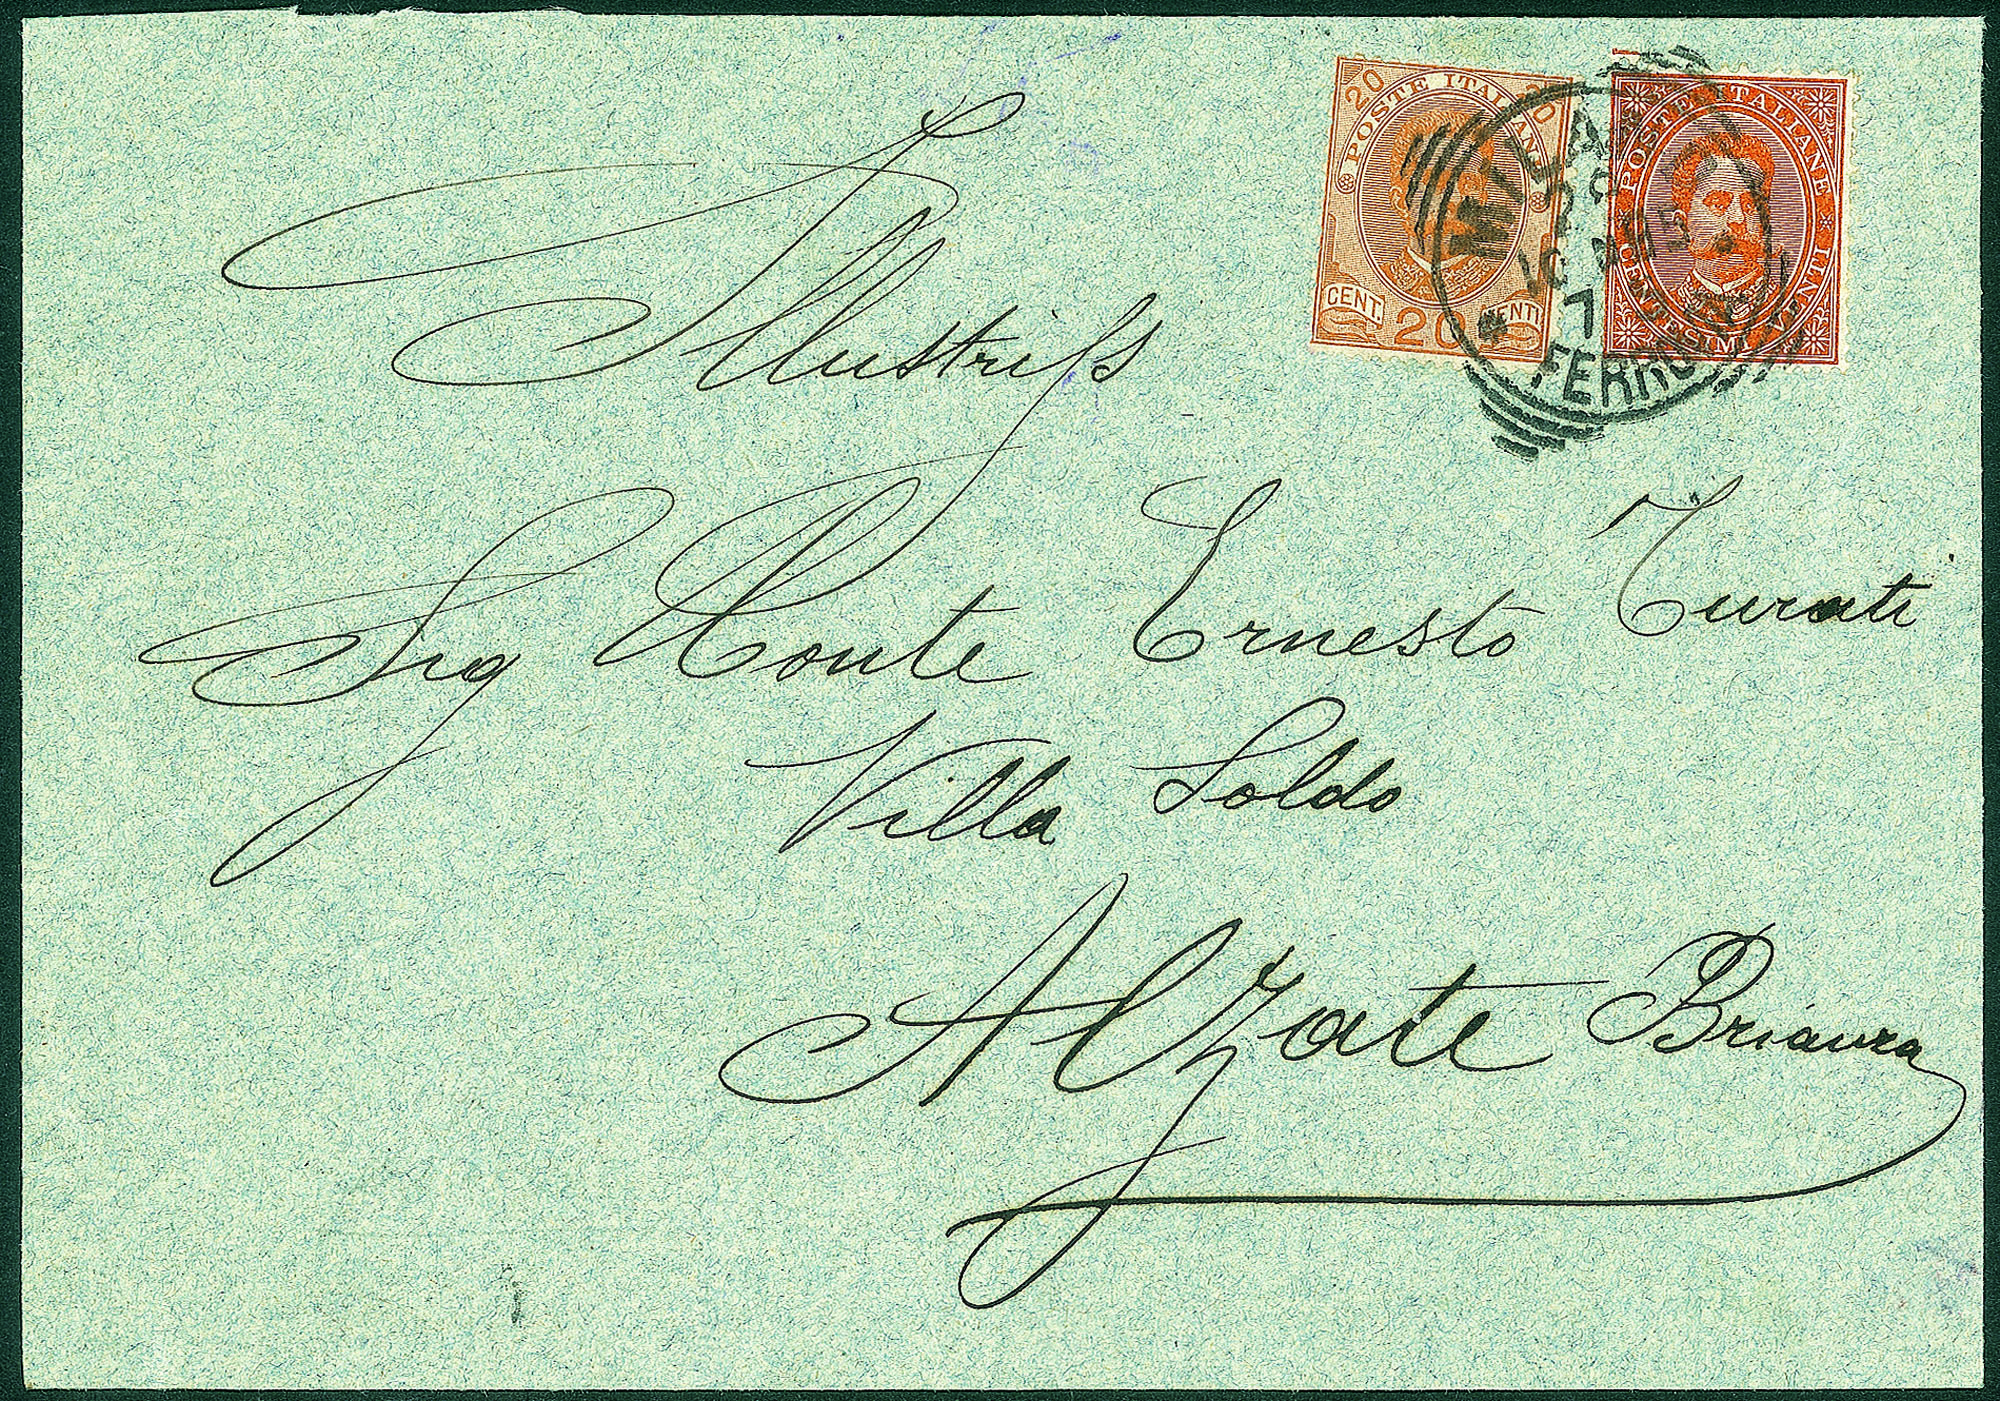 20 POSTE ITALIANE 20
CENT. 20 VENTI
POSTE ITALIANE
CENTESIMI VENTI
MILANO
10
7
FERROVIA
Illustriss
Sig Conte Ernesto Turati
Villa Soldo
Alzate Brianza